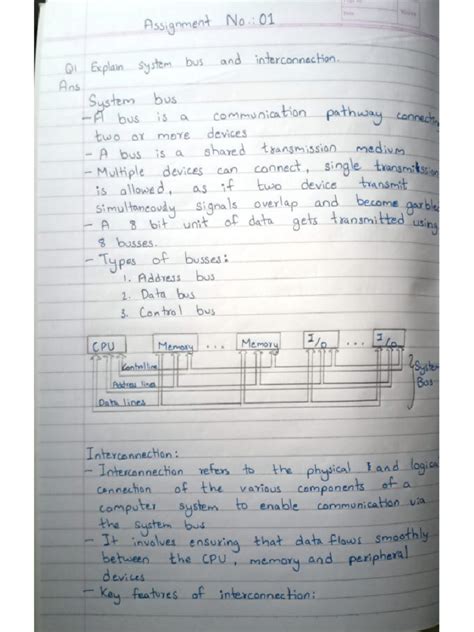 Assignment No.: 01
Q1 Explain system bus and interconnection.
Ans
System bus
- A bus is a communication pathway connecting
two or more devices
- A bus is a shared transmission medium
- Multiple devices can connect, single transmission
is allowed, as if two device transmit
simultaneously signals overlap and become garbled
- A 8 bit unit of data gets transmitted using
8 busses.
- Types of busses:
1. Address bus
2. Data bus
3. Control bus
CPU Memory ... Memory I/O ... I/O
Control line
Address lines
Data lines
System
Bus
Interconnection:
- Interconnection refers to the physical and logical
connection of the various components of a
computer system to enable communication via
the system bus
- It involves ensuring that data flows smoothly
between the CPU, memory and peripheral
devices
- Key features of interconnection: